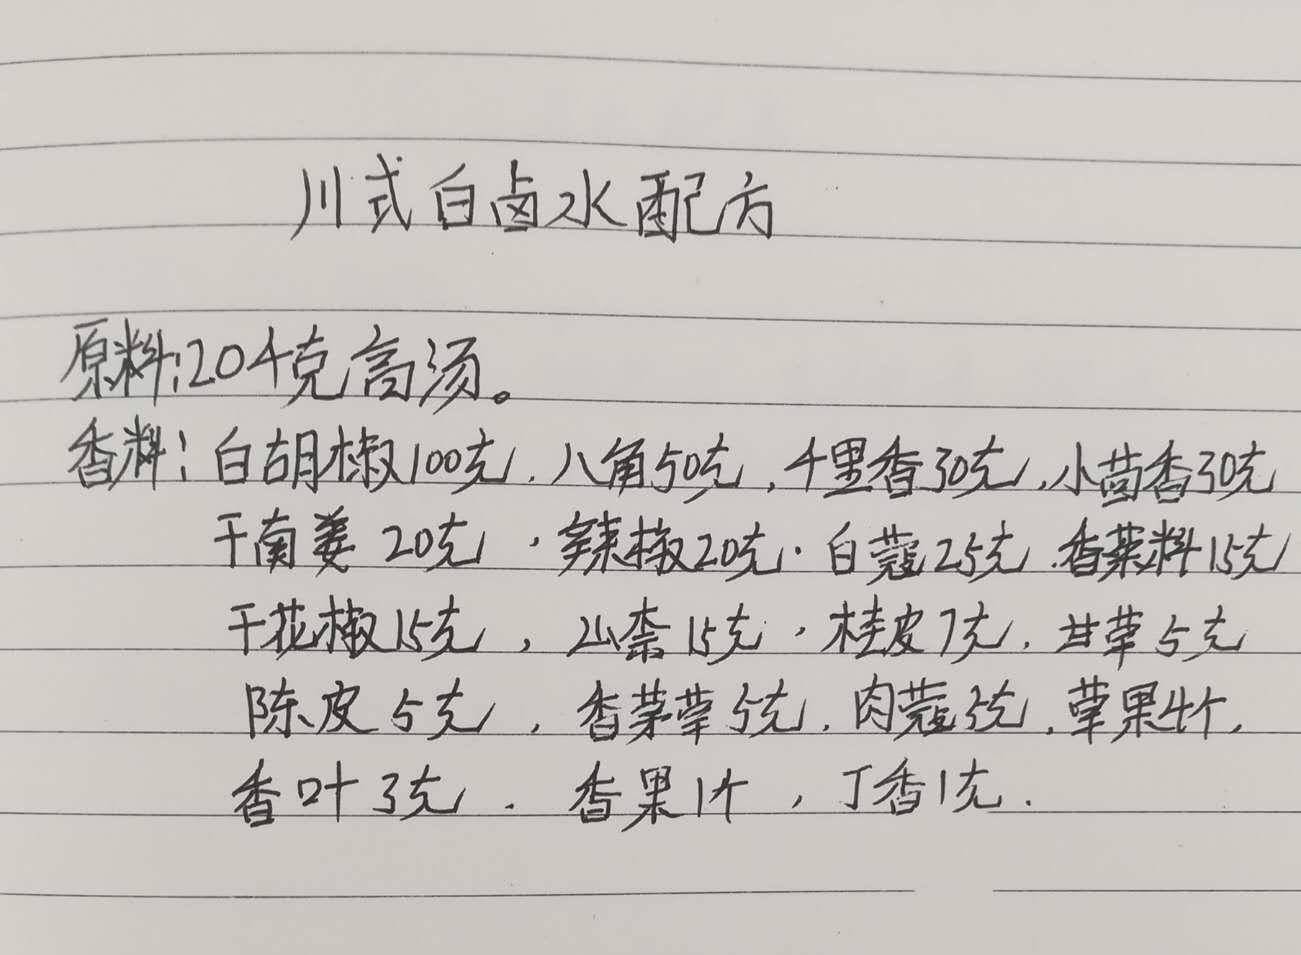 川式白卤水配方
原料:20千克高汤。
香料:白胡椒100克,八角50克,千里香30克,小茴香30克
干南姜20克,辣椒20克,白蔻25克,香菜料15克
干花椒15克,山柰15克,桂皮7克,甘草5克
陈皮5克,香茅草5克,肉蔻3克,草果4个,
香叶3克,香果1个,丁香1克.